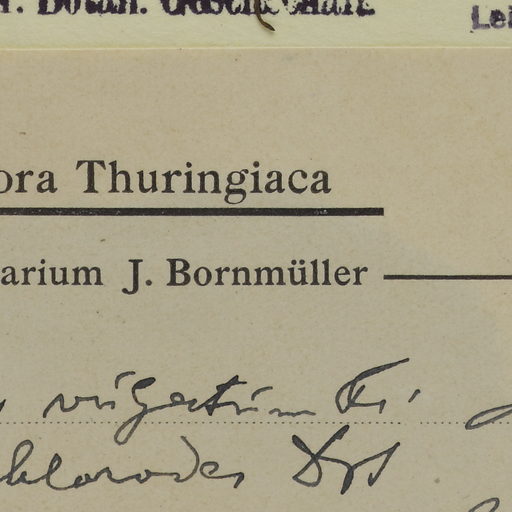 r. Botan. Gesellschaft. Lei
ora Thuringiaca
arium J. Bornmüller
vulgatum Fr.